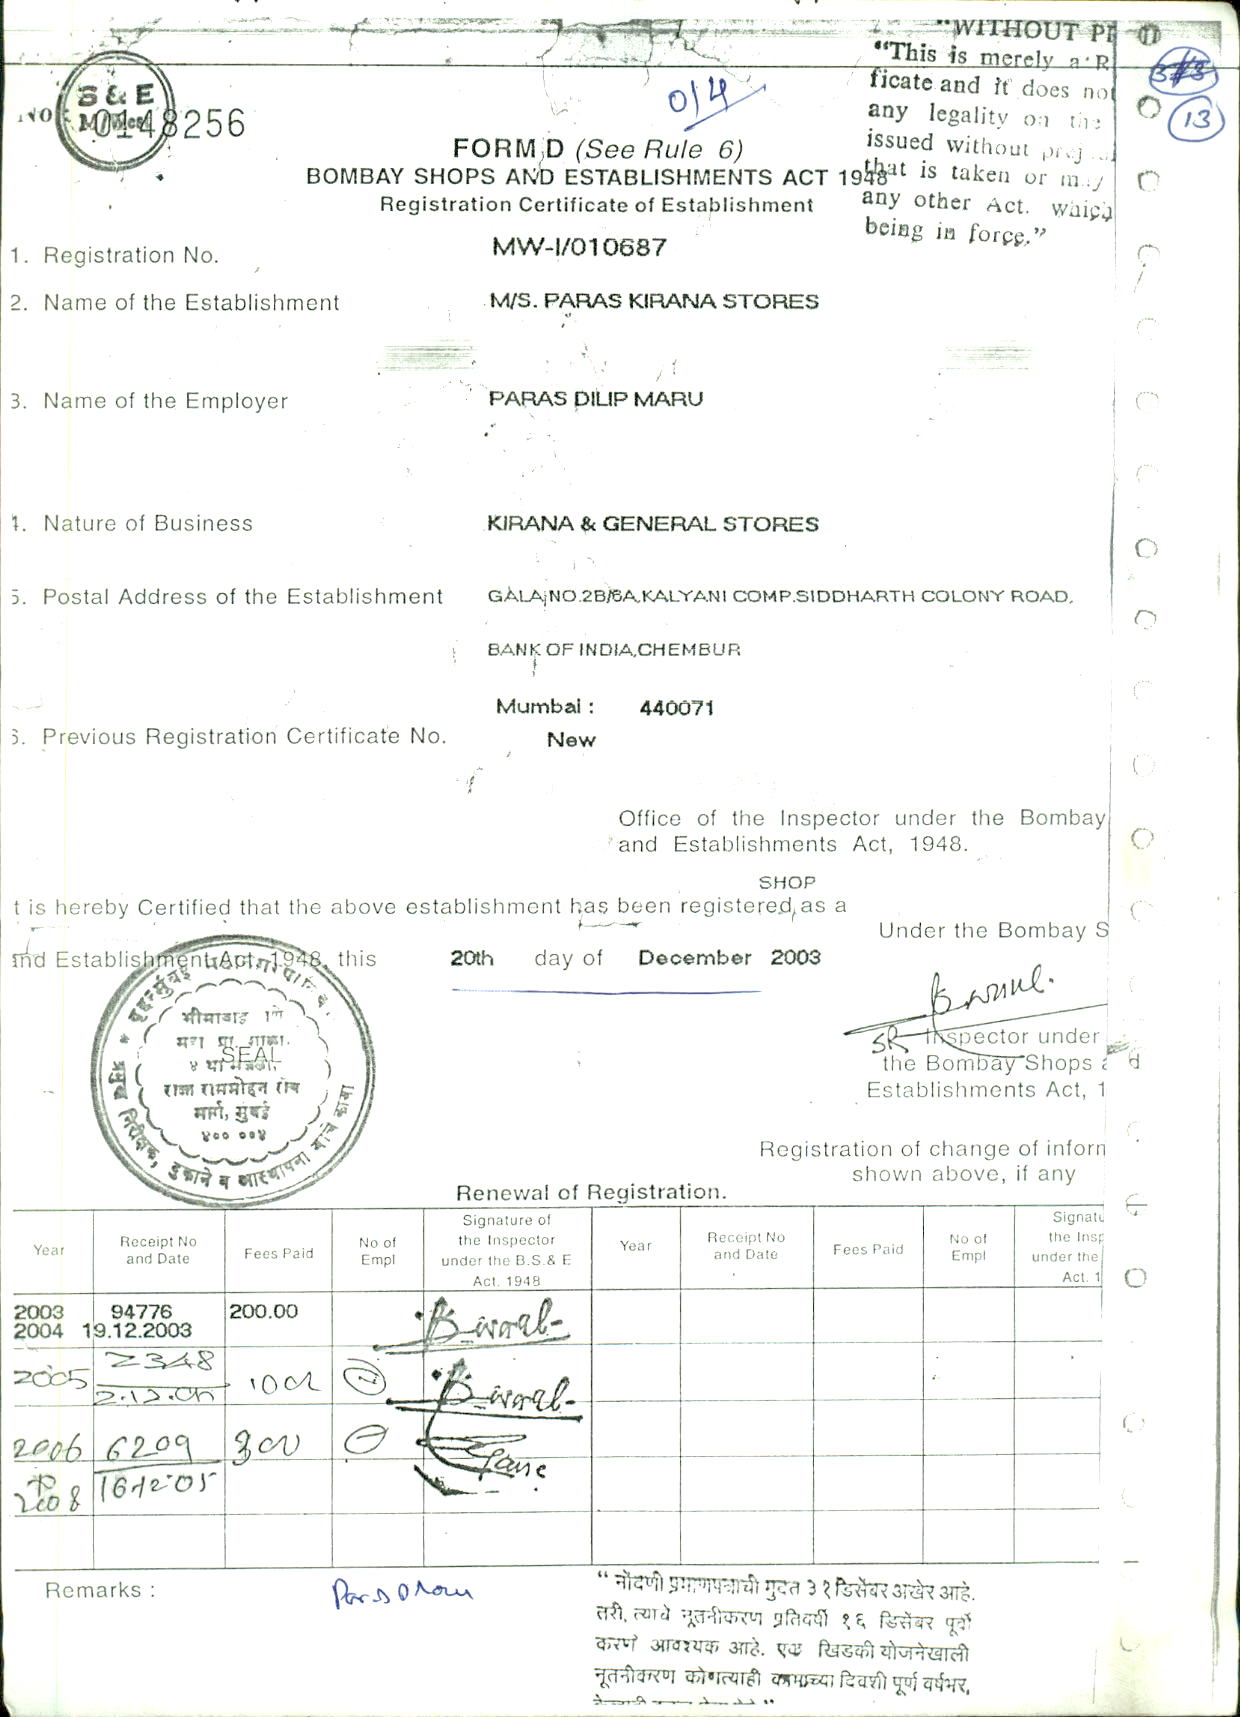 "WITHOUT PR
"This is merely a R
ficate and it does not
any legality on the
issued without prej
that is taken or may
any other Act. which
being in force."
373
13
014
S & E
No 0148256
FORM D (See Rule 6)
BOMBAY SHOPS AND ESTABLISHMENTS ACT 1948
Registration Certificate of Establishment
1. Registration No. MW-I/010687
2. Name of the Establishment M/S. PARAS KIRANA STORES
3. Name of the Employer PARAS DILIP MARU
4. Nature of Business KIRANA & GENERAL STORES
5. Postal Address of the Establishment GALA NO.2B/6A,KALYANI COMP.SIDDHARTH COLONY ROAD,
BANK OF INDIA,CHEMBUR
Mumbai : 440071
6. Previous Registration Certificate No. New
Office of the Inspector under the Bombay
and Establishments Act, 1948.
SHOP
t is hereby Certified that the above establishment has been registered as a
Under the Bombay S
and Establishment Act, 1948, this 20th day of December 2003
SR Inspector under
the Bombay Shops a
Establishments Act, 1
भीमावाई
SEAL
राजा राममोहन रॉय
मार्ग, मुंबई
४०० ००४
प्रमुख निरीक्षक, दुकाने व आस्थापना यांचे
Registration of change of inform
shown above, if any
Renewal of Registration.
Year Receipt No and Date Fees Paid No of Empl Signature of the Inspector under the B.S.& E Act. 1948 Year Receipt No and Date Fees Paid No of Empl Signatu the Insp under the Act. 1
2003 94776 200.00
2004 19.12.2003
2005 2348 100/
2006 6209 300
to 2008 16-12-05
Remarks :
"नोंदणी प्रमाणपत्राची मुदत ३१ डिसेंबर अखेर आहे.
तरी, त्याचे नूतनीकरण प्रतिवर्षी १६ डिसेंबर पूर्वी
करणे आवश्यक आहे. एक खिडकी योजनेखाली
नूतनीकरण कोणत्याही कामाच्या दिवशी पूर्ण वर्षभर,